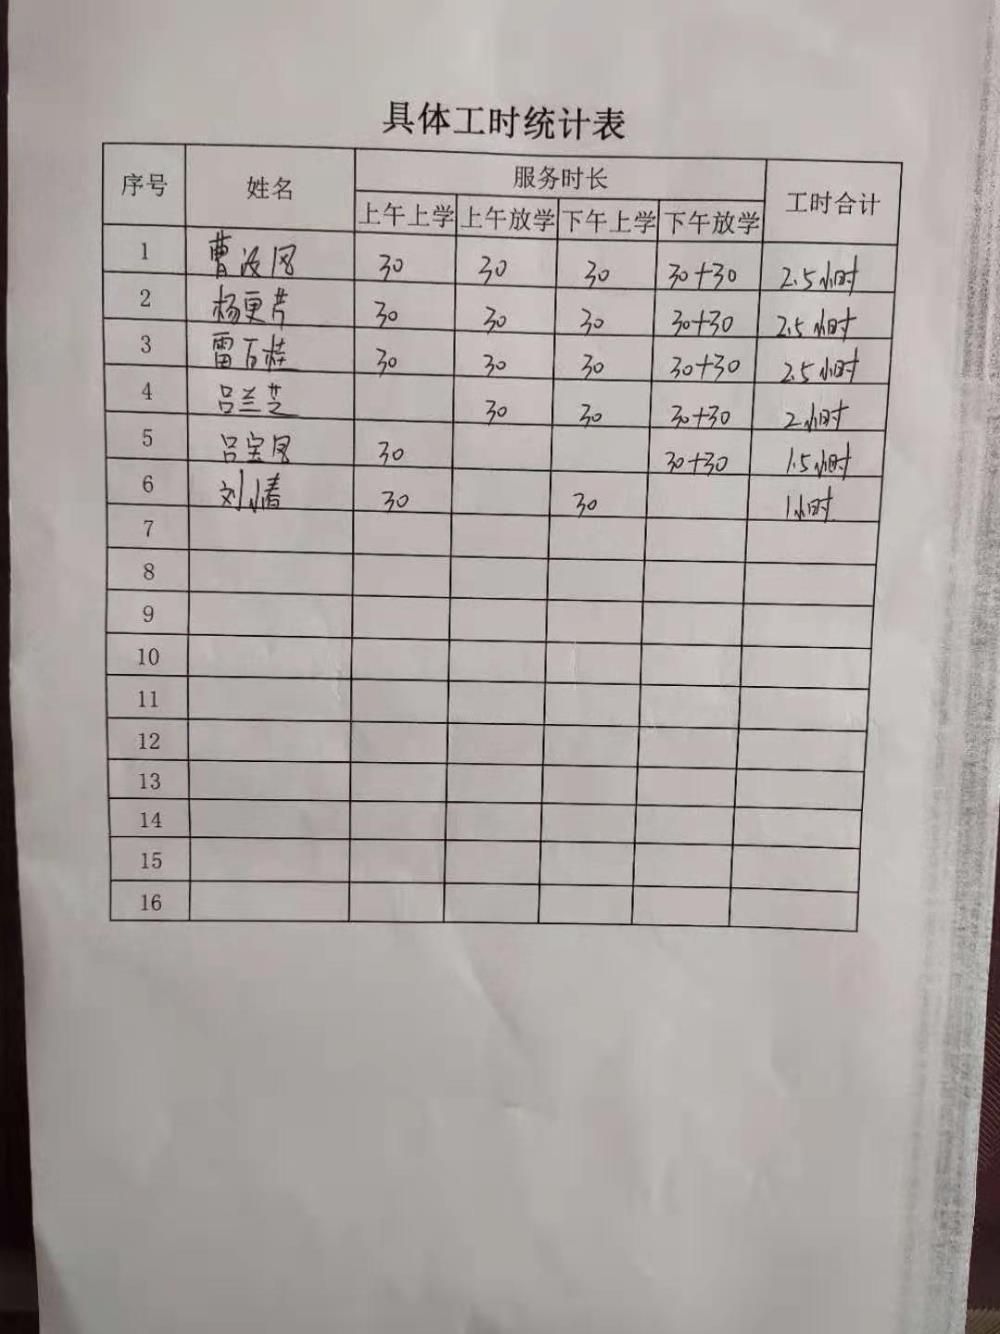 具体工时统计表
序号 姓名 服务时长 工时合计
上午上学 上午放学 下午上学 下午放学
1 曹 30 30 30 30+30 2.5小时
2 杨更芹 30 30 30 30+30 2.5小时
3 雷石桂 30 30 30 30+30 2.5小时
4 吕兰芝 30 30 30+30 2小时
5 吕宝凤 30 30+30 1.5小时
6 刘小清 30 30 1小时
7
8
9
10
11
12
13
14
15
16